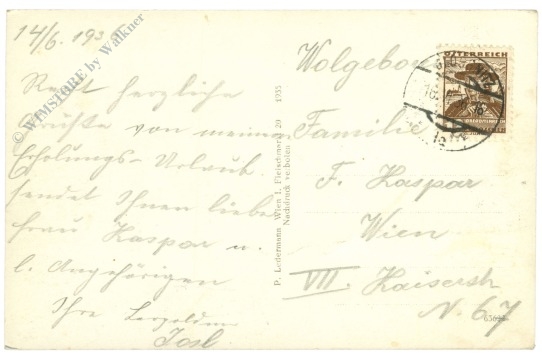 14/6. 1936
© WIMSTORE by Walkner
Recht herzliche
Grüße von meinem
Erholungs-Urlaub
sendet Ihnen liebe
Frau Kaspar u.
l. Angehörigen
Ihre Leopoldine
Josl
P. Ledermann Wien I., Fleischmarkt 20 1935
Nachdruck verboten
ÖSTERREICH
Wolgebor
Familie
F. Kaspar
Wien
VII. Kaiserstr
N. 67